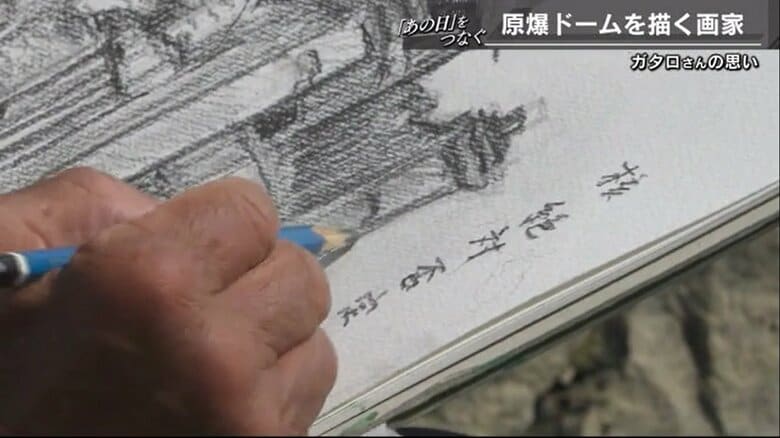 「あの日」を
つなぐ
原爆ドームを描く画家
ガタロさんの思い
核絶対否定